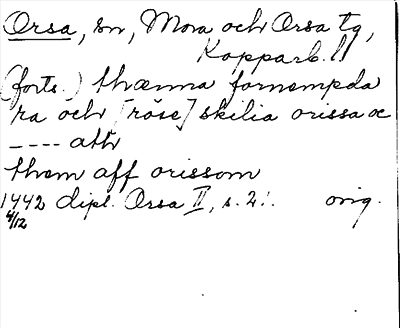 Orsa, sn, Mora och Orsa tg,
Kopparb. ll
(forts.) thænna fornempda
ra och [röse] skilia orissa oc
---- ath
them aff orissom
1442 dipl. Orsa II, s. 21. orig.
4/12